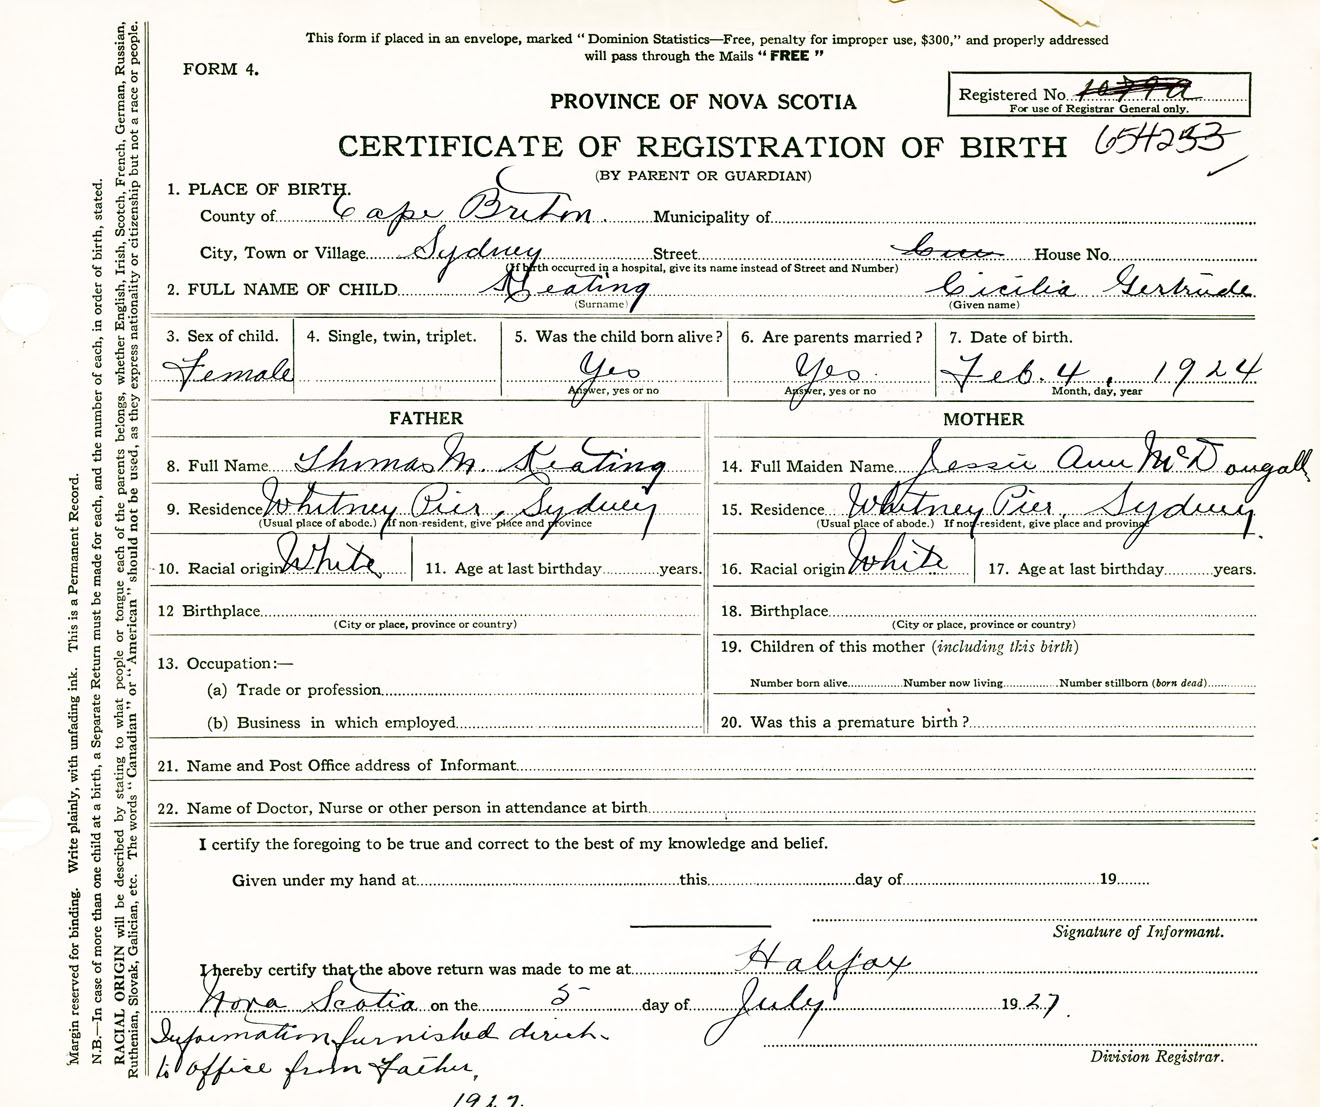 This form if placed in an envelope, marked “Dominion Statistics—Free, penalty for improper use, $300,” and properly addressed
will pass through the Mails “FREE”
FORM 4.
Registered No.
For use of Registrar General only.
PROVINCE OF NOVA SCOTIA
CERTIFICATE OF REGISTRATION OF BIRTH 654253
(BY PARENT OR GUARDIAN)
1. PLACE OF BIRTH.
County of Cape Breton. Municipality of
City, Town or Village Sydney Street House No.
(If birth occurred in a hospital, give its name instead of Street and Number)
2. FULL NAME OF CHILD Keating Cicilia Gertrude
(Surname) (Given name)
3. Sex of child. 4. Single, twin, triplet. 5. Was the child born alive? 6. Are parents married? 7. Date of birth.
Female Yes Yes Feb. 4, 1924
Answer, yes or no Answer, yes or no Month, day, year
FATHER MOTHER
8. Full Name Thomas M. Keating 14. Full Maiden Name Jessie Ann McDougall
9. Residence Whitney Pier, Sydney 15. Residence Whitney Pier, Sydney.
(Usual place of abode.) If non-resident, give place and province (Usual place of abode.) If non-resident, give place and province
10. Racial origin White 11. Age at last birthday years. 16. Racial origin White 17. Age at last birthday years.
12 Birthplace 18. Birthplace
(City or place, province or country) (City or place, province or country)
13. Occupation:— 19. Children of this mother (including this birth)
(a) Trade or profession Number born alive Number now living Number stillborn (born dead)
(b) Business in which employed 20. Was this a premature birth?
21. Name and Post Office address of Informant
22. Name of Doctor, Nurse or other person in attendance at birth
I certify the foregoing to be true and correct to the best of my knowledge and belief.
Given under my hand at this day of 19
Signature of Informant.
I hereby certify that the above return was made to me at Halifax
Nova Scotia on the 5 day of July 1927.
Information furnished direct
to office from Father,
Division Registrar.
1927.
Margin reserved for binding. Write plainly, with unfading ink. This is a Permanent Record.
N.B.—In case of more than one child at a birth, a Separate Return must be made for each, and the number of each, in order of birth, stated.
RACIAL ORIGIN will be described by stating to what people or tongue each of the parents belongs, whether English, Irish, Scotch, French, German, Russian,
Ruthenian, Slovak, Galician, etc. The words “Canadian” or “American” should not be used, as they express nationality or citizenship but not a race or people.